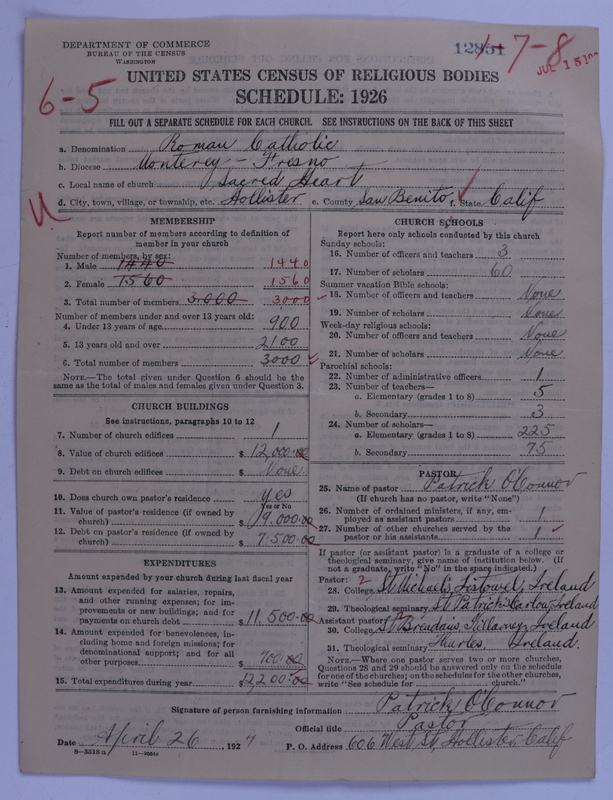 DEPARTMENT OF COMMERCE
BUREAU OF THE CENSUS
WASHINGTON
12851 7-8
JUL 15 192
6-5
UNITED STATES CENSUS OF RELIGIOUS BODIES
SCHEDULE: 1926
FILL OUT A SEPARATE SCHEDULE FOR EACH CHURCH. SEE INSTRUCTIONS ON THE BACK OF THIS SHEET
a. Denomination Roman Catholic
b. Diocese Monterey - Fresno
c. Local name of church Sacred Heart
U
d. City, town, village, or township, etc. Hollister e. County San Benito f. State Calif
MEMBERSHIP
Report number of members according to definition of
member in your church
Number of members, by sex:
1. Male 1440 1440
2. Female 1560 1560
3. Total number of members 3.000 3000
Number of members under and over 13 years old:
4. Under 13 years of age 900
5. 13 years old and over 2100
6. Total number of members 3000
NOTE.—The total given under Question 6 should be the
same as the total of males and females given under Question 3.
CHURCH BUILDINGS
See instructions, paragraphs 10 to 12
7. Number of church edifices 1
8. Value of church edifices $ 12,000.00
9. Debt on church edifices $ None
10. Does church own pastor's residence yes
Yes or No
11. Value of pastor's residence (if owned by
church) $ 9.000.00
12. Debt on pastor's residence (if owned by
church) $ 7.500.00
EXPENDITURES
Amount expended by your church during last fiscal year
13. Amount expended for salaries, repairs,
and other running expenses; for im-
provements or new buildings; and for
payments on church debt $ 11,500.00
14. Amount expended for benevolences, in-
cluding home and foreign missions; for
denominational support; and for all
other purposes 700.00
15. Total expenditures during year $12200.00
CHURCH SCHOOLS
Report here only schools conducted by this church
Sunday schools:
16. Number of officers and teachers 3
17. Number of scholars 60
Summer vacation Bible schools:
18. Number of officers and teachers None
19. Number of scholars None
Week-day religious schools:
20. Number of officers and teachers None
21. Number of scholars None
Parochial schools:
22. Number of administrative officers 1
23. Number of teachers—
a. Elementary (grades 1 to 8) 5
b. Secondary 3
24. Number of scholars—
a. Elementary (grades 1 to 8) 225
b. Secondary 75
PASTOR
25. Name of pastor Patrick O'Connor
(If church has no pastor, write "None")
26. Number of ordained ministers, if any, em-
ployed as assistant pastors 1
27. Number of other churches served by the
pastor or his assistants 1
If pastor (or assistant pastor) is a graduate of a college or
theological seminary, give name of institution below. (If
not a graduate, write "No" in the space indicated.)
Pastor: 2
28. College St Michael's, Listowel, Ireland
29. Theological seminary St Patrick's Carlow, Ireland
Assistant pastor: 2
30. College St Brendan's Killarney, Ireland
31. Theological seminary Thurles, Ireland.
NOTE.—Where one pastor serves two or more churches,
Questions 28 and 29 should be answered only on the schedule
for one of the churches; on the schedules for the other churches,
write "See schedule for church."
Signature of person furnishing information Patrick O'Connor
Official title Pastor
Date April 26 1927 P. O. Address 606 West St, Hollister, Calif
8-3318a